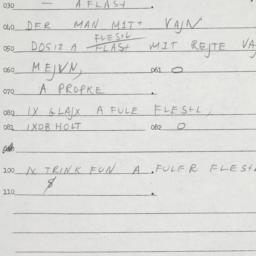 030 — A FLASH
040 DER MAN MIT VAJN
FLESTL
050 DOS IZ A FLASH MIT REJTE VA
060 MEJVN, 061 O
070 A PROPKE
080 IX GLAJX A FULE FLESTL,
081 IXOB HOLT 082 O
100 IX TRINK FUN A FULER FLESH
110